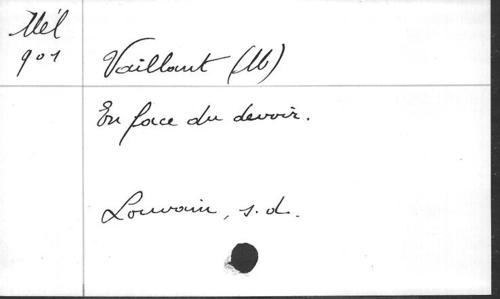 Mél
901
Vaillant (M)
En face du devoir.
Louvain, s.d.